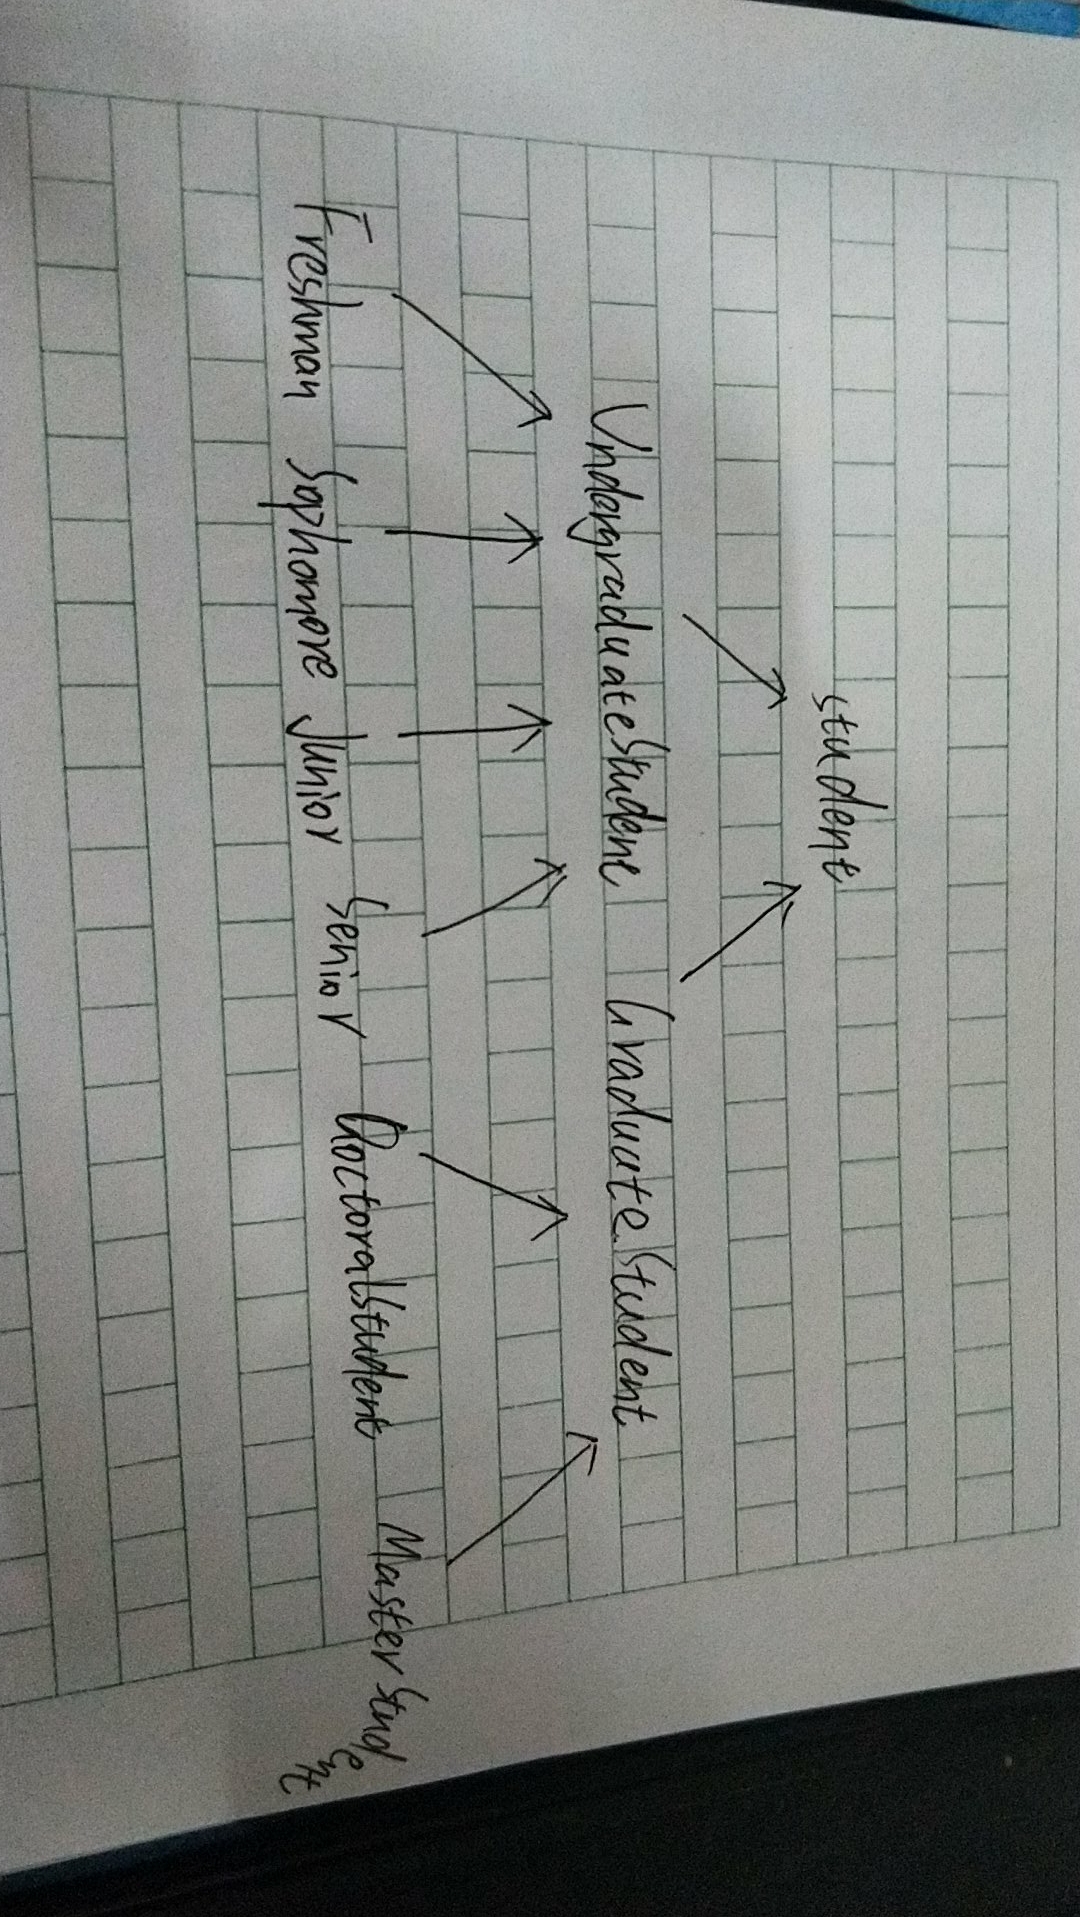 student
UndergraduateStudent GraduateStudent
Freshman Sophomore Junior Senior DoctoralStudent MasterStudent